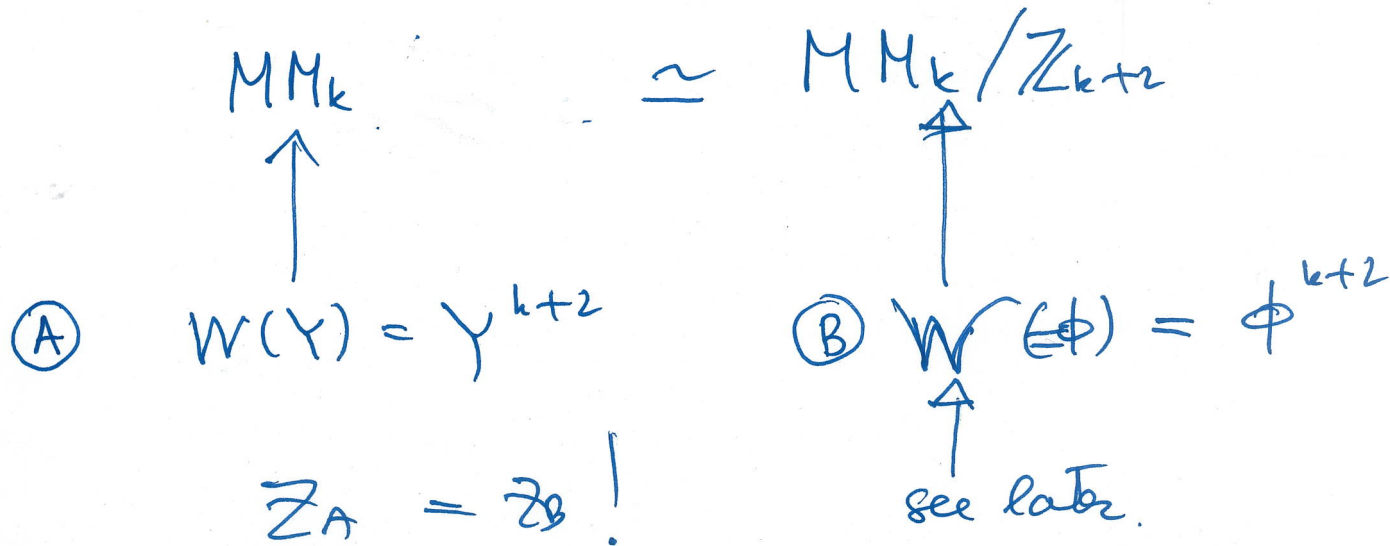 MM_k ≃ MM_k/ℤ_{k+2}
Ⓐ W(Y) = Y^{k+2} Ⓑ W(ϕ) = ϕ^{k+2}
Z_A = Z_B! see later.